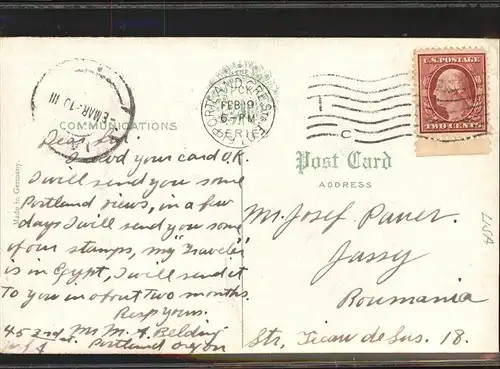 U.S. POSTAGE
TWO CENTS
PORTLAND, ORE. STA.
FEB 19
6-PM
C
COMMUNICATIONS
Post Card
ADDRESS
Made in Germany.
Dear Sir:
I recd your card O.K.
I will send you some
Portland views, in a few
days I will send you some
of our stamps, my "Traveler"
is in Egypt, I will send it
to you in about two months.
Resp yours.
45 2nd st. Mr M. A. Belding
Portland Oregon
Mr. Josef Pauer.
Jassy
Roumania
Str. Zicau de Sus. 18.
USA